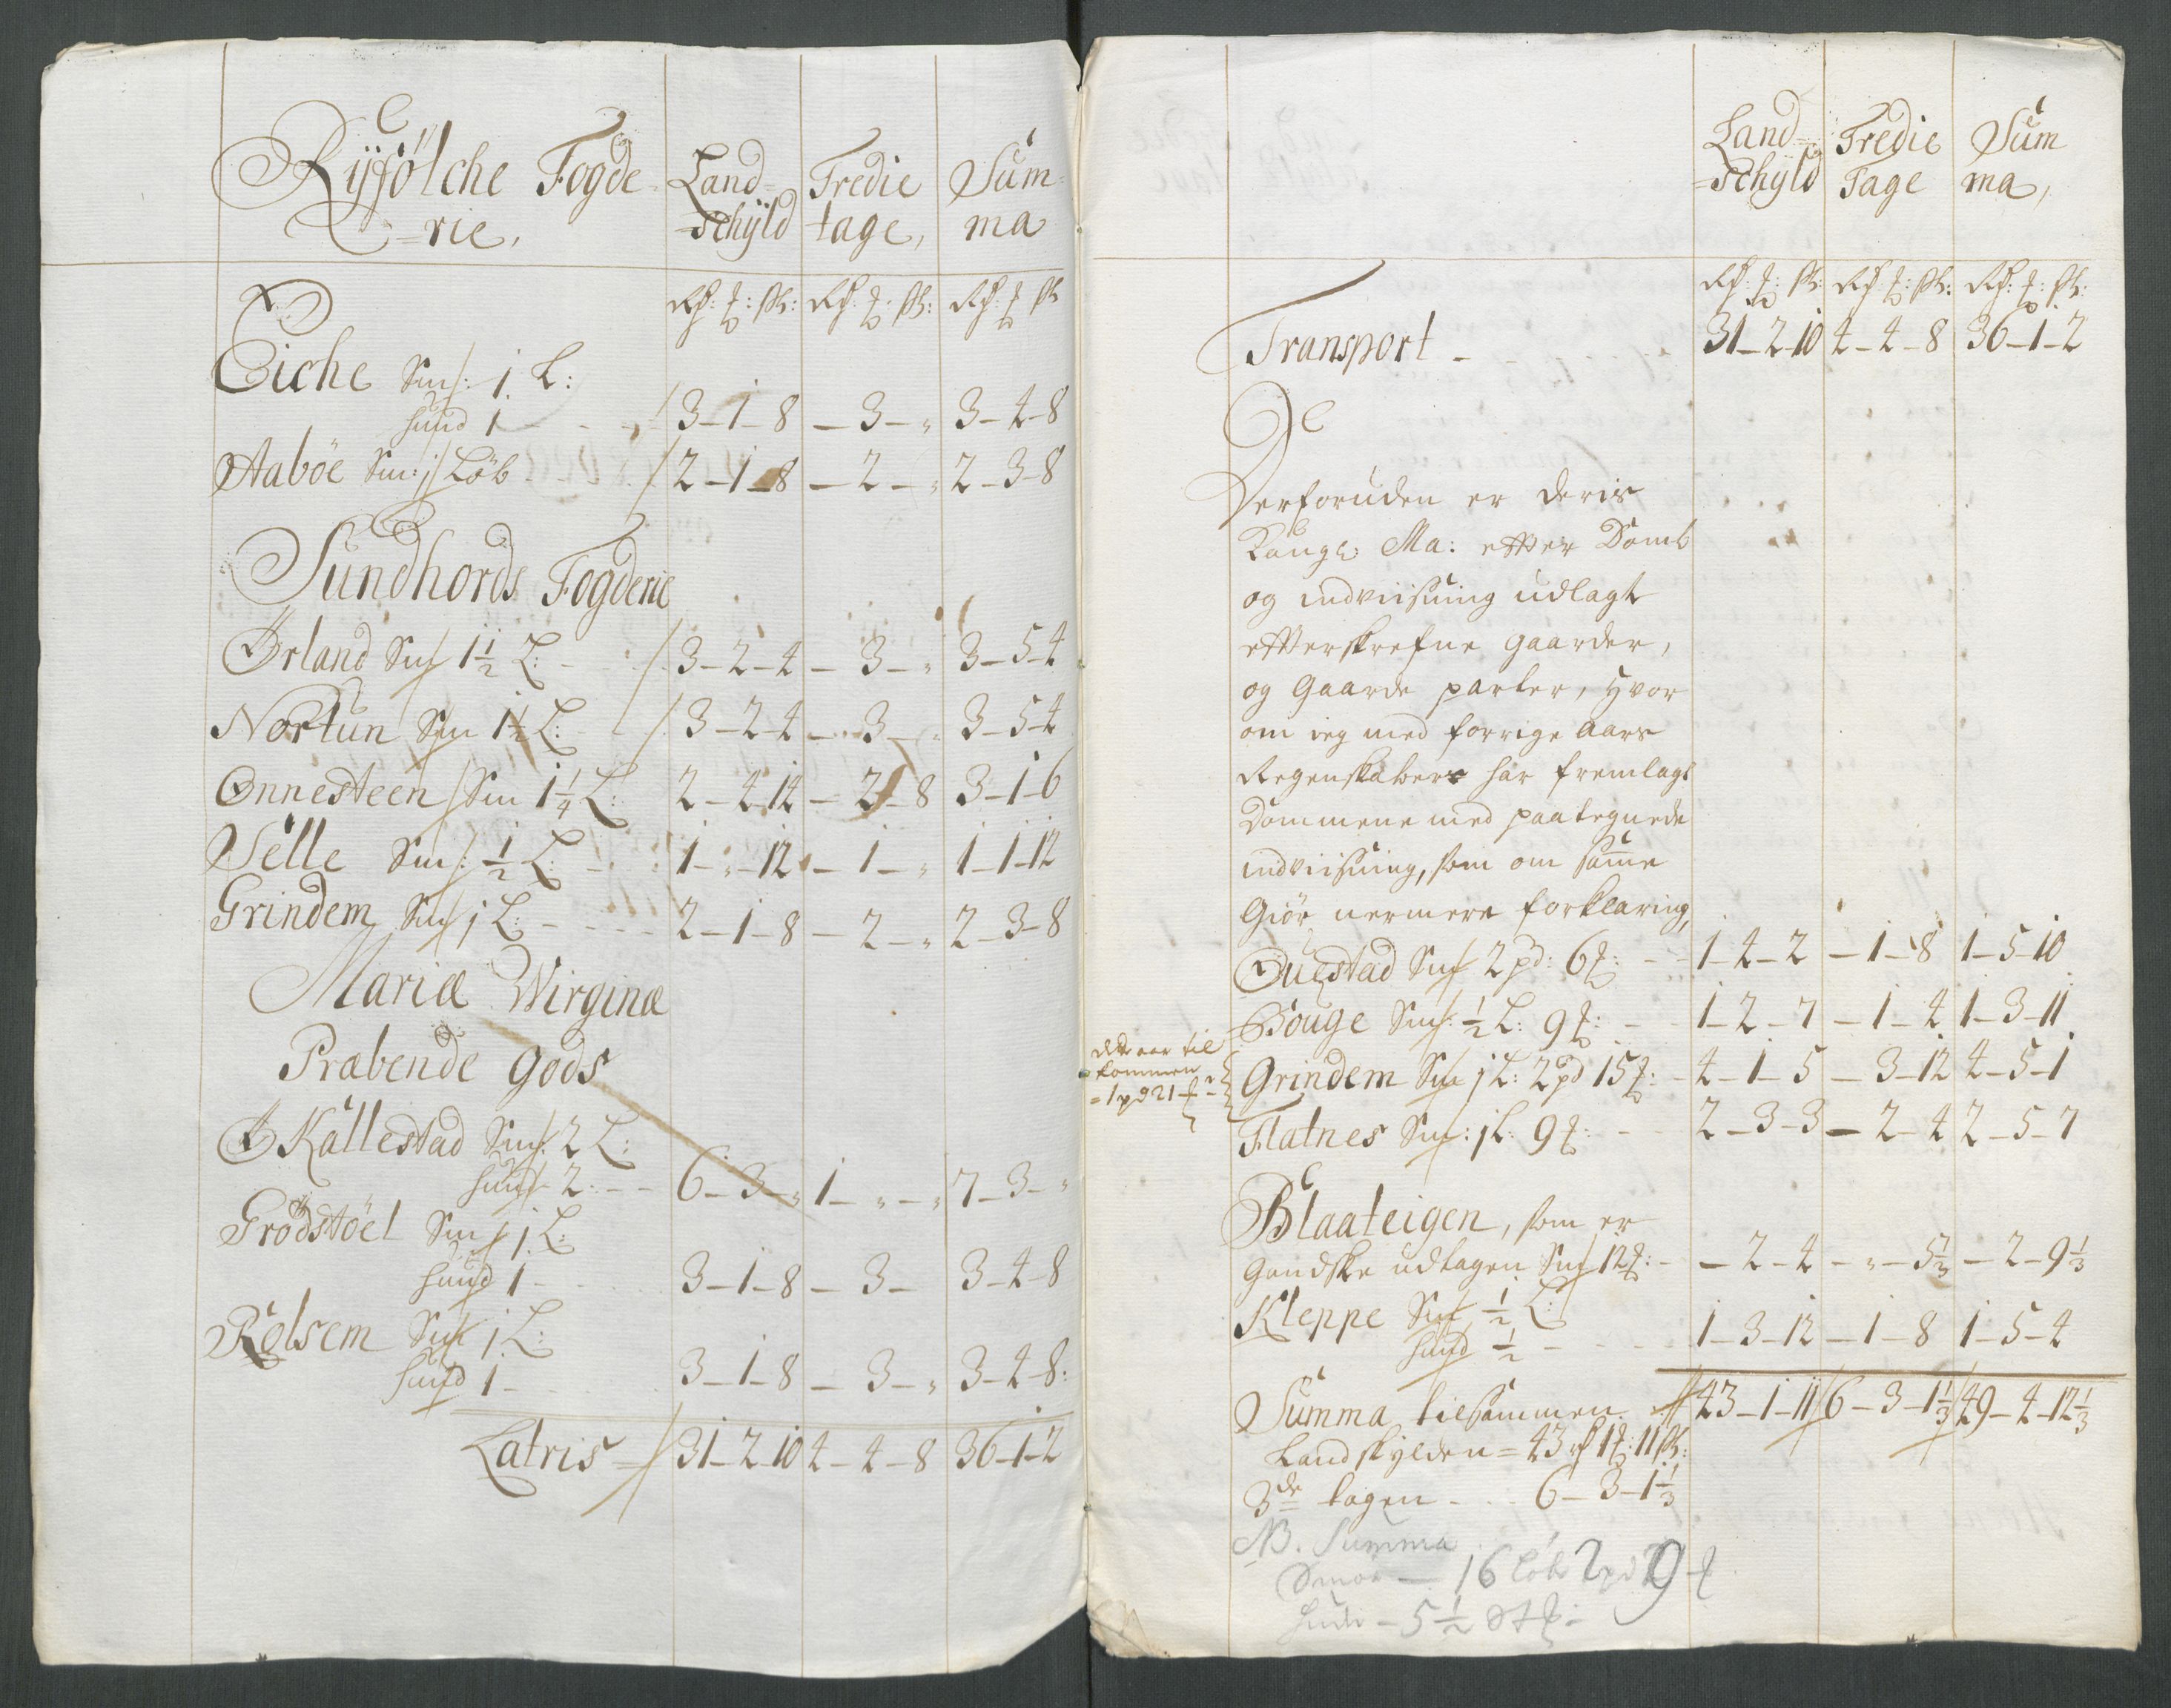 Ryfölche Fogde-
=rie,
Land=
=schÿld
Tredie
tage,
Sum
ma
Rd: ℔: ß: Rd: ℔: ß: Rd: ℔ ß
Eiche Smf: 1 L:
hund 1 - - - 3-1-8 - 3 - „ 3-4-8
Aaböe Sm: 1 Löb - - 2-1-8 - 2 - „ 2-3-8
Sundhords Fogderie
Örland Smf 1½ L: - - 3-2-4 - 3 - „ 3-5-4
Nortun Sm 1½ L: - - 3-2-4 - 3 - „ 3-5-4
Onnesteen Sm 1¼ L: 2-4-14 - 2-8 3-1-6
Velle Sm: ½ L: - - 1-„-12 - 1 - „ 1-1-12
Grindem Sm 1 L: - - - 2-1-8 - 2 - „ 2-3-8
Mariæ Wirginæ
Præbende gods
Kallestad Smf: 2 L:
hund 2 - - 6-3-„ 1-„-„ 7-3-„
Grödstöel Sm 1 L:
hund 1 - - 3-1-8 - 3 - 3-4-8
Rolsem Sm 1 L:
hund 1 - 3-1-8 - 3 - „ 3-4-8:
Latris 31-2-10 4-4-8 36-1-2
Land=
=schÿld
Tredie
Tage
Sum
ma,
Rd: ℔: ß: Rd: ℔: ß: Rd: ℔: ß:
Transport - 31-2-10 4-4-8 36-1-2
Derforuden er deris
Kongl: Ma: efter Domb
og indviisning udlagt
efterskrefne gaarder,
og Gaarde parter, hvor
om ieg med forrige aars
Regenskaber har fremlagt
Dommene med paategnede
indviisning, som om samme
Giör nermere forklaring,
Questad Smf 2 pd: 6 ℔: - - 1-4-2 - 1-8 1-5-10
Bouge Smf: ½ L: 9 ℔: - - 1-2-7 - 1-4 1-3-11
dette aar til
kommen
=1 pd 21 ℔
Grindem Sm 1 L: 2 pd 15 ℔: - 4-1-5 - 3-12 4-5-1
Flatnes Sm: 1 L: 9 ℔: - - 2-3-3 - 2-4 2-5-7
Blaateigen, som er
gandske udtagen Smf 12 ℔: - - 2-4 - „-5⅓ - 2-9⅓
Kleppe Sm ½ L:
hund ½ - - - 1-3-12 - 1-8 1-5-4
Summa tilsammen 43-1-11 6-3-1⅓ 49-4-12⅓
Landskylden = 43 rd 1 ℔: 11 ß:
3de tagen - - 6-3-1⅓
NB. Summa
Smör — 16 Löb 2 pd 9 ℔
hude - 5½